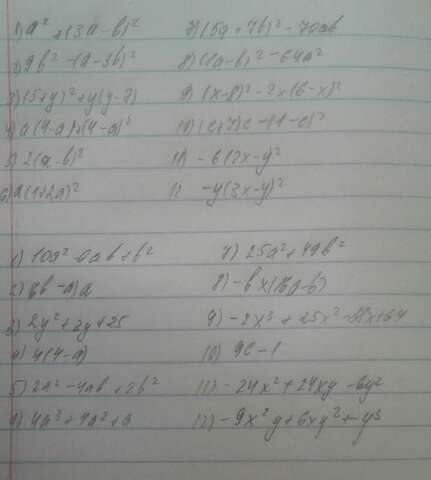 1) a² + (3a-b)²
2) 9b² - (a-3b)²
3) (5+y)² + y(y-7)
4) a(4-a)+(4-a)²
5) 2(a-b)²
6) a(1+2a)²
7) (5a+7b)² - 70ab
8) (a-b)² - 64a²
9) (x-8)² - 2x(6-x)²
10) (c+7)c - (1-c)²
11) -6(2x-y)²
12 -y(3x-y)²
1) 10a² - 6ab + b²
2) (6b-a)a
3) 2y² + 3y + 25
4) 4(4-a)
5) 2a² - 4ab + 2b²
6) 4a³ + 4a² + a
7) 25a² + 49b²
8) -b x(16a-b)
9) -2x³ + 25x² - 88x + 64
10) 9c - 1
11) -24x² + 24xy - 6y²
12) -9x²y + 6xy² - y³